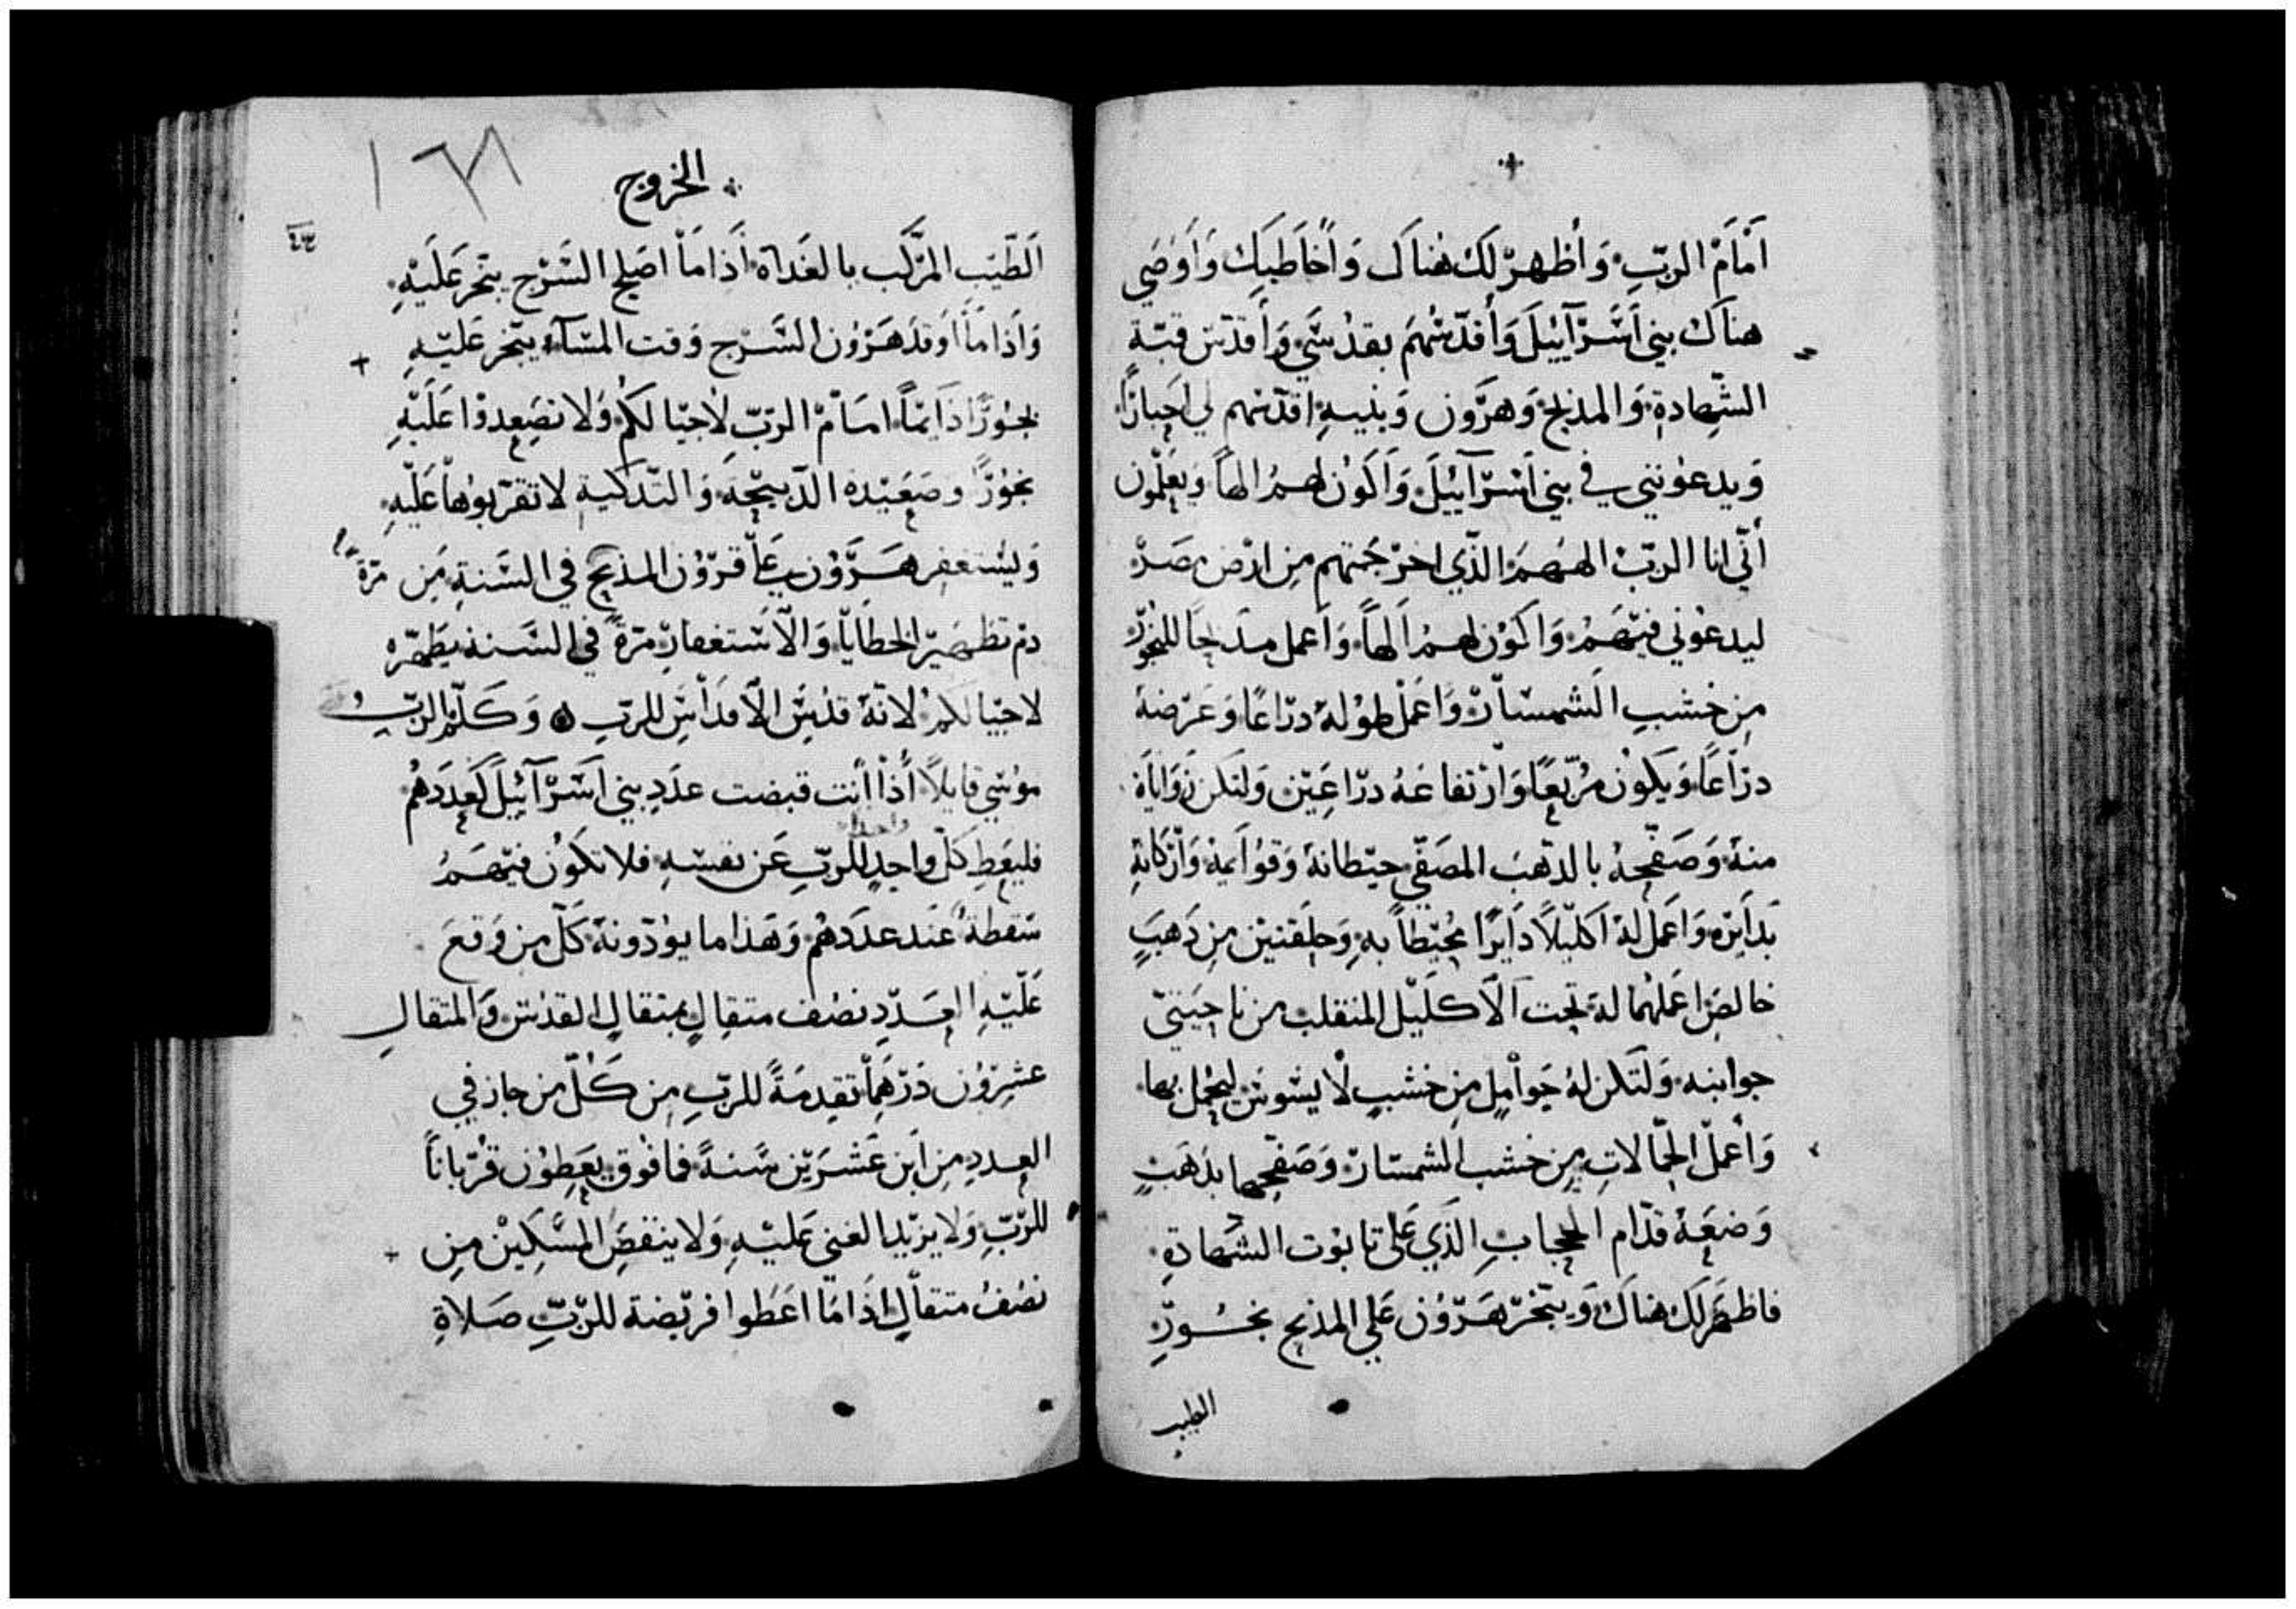 اَمَامَ الربّ وَأظهرَ لَك هُناكَ وَاُخَاطبَك وَاَوَصَي
هناك بني اَسَرآئيلَ وَأقدّسُهمَ بقدُسَي وَأقدّسَ قبّة
الشّهادةِ وَالمذبح وَهرَون وَبنيهِ اقدّسهم لي احبارًا
وَيدعوُنني في بني اَسَرآئيلَ وَاَكوُن لهمُ الهاً وَيعَلمون
أنّي انا الربّ الههمَ الذّي اخرَجَتهم مِن ارَض مصَرَ
ليدعوُني فيهَمُ وَاكوُن لهمُ اَلهاً وَاَعمل مدبحا للبخوُرَ
مِن خشبِ الشمسَارَ وَاعَمَل طوُلهُ درَاعًا وَعَرَضهُ
درَاعًا وَيكوُن مُربّعًا وَارَتفاعَهُ درَاعَيَن وَلتكن زوَاياهَ
منهُ وَصَفّحهُ بالدَهبَ المصَفّي حيَطانهُ وَقوُاَيمهُ وَارَكانهِ
بَداَيرَه وَاعَمَل لهُ اَكليَلاً دَايرًا مُحيَطاً بهِ وَحلقتيَن مِن دَهبَ
خالصَ اعَملهُما لهُ تحت اَلاَكليَل المنقلب من ناحيَتيَ
جوانبه وَلتكن لهُ حوَامِل مِن خشبِ لاَ يسَوسَ ليحُمل بها
وَأعملَ الحَمّالاتِ مِن خشب الشمسَارَ وَصَفّحها بدَهَبِ
وَضعَهُ قدّام الحجَابِ الذَي عَلى تابوُت الشهادَةِ
فاظهَرَ لَك هناكَ وَيبّخرَ هَرَوُن عَلي المذبح بخُــورَ
الطيب
الخروج
٤٣
اَلطّيَب المرَكَب بالغَدَاة اَذَا مَا اصَلح السَرَج يبّخرَ عَلَيَهِ
وَاَذَا مَا اَوقدَ هَرَوُن السَرَج وَقت المسَآء يبّخر عَليَهِ
بخوُرًا دَايمَاً امَامَ الربّ لاحَيالكُم وَلا تصَعِدوُا عَلَيهِ
بخوُرًا وصَعَيَده الدّبيحَة وَالتّدَكية لا تقرَبوُها عَليَهِ
وَليسُتغفِر هَــرَوُن عَلَي قروُن المذبَح في السَنةِ مَن مرّةً
دم تطَهيَر الخطَاياَ وَالاَسَتغفارَ مرّةً في السَنة يطَهّره
لاحَيالكُم لانّهُ قدُسَ الاَقدَاسَ للربّ وَكَلّمَ الربُ
موُسَي قايلاً أذَا أنت قبضت عدَد بني اَسَرَآئيلَ كعدَدَهُم
فليعَطِ كَلّ واحِدٍ للرَبِ عَن نفسَهِ فلا تكوُن فيَهمَُ
سَقطَةُ عَند عدَدَهُم وَهَذا ما يوُدّونهُ كَلّ من وَقعَ
عَلَيَهِ العَــدَدِ نصُف متقالٍ بمتقالِ القدُسَ وَالمتقالِ
عشِرَوُن دَرَهَماً تقدِمَةً للربِ مِن كَــلّ من جاز في
العــدد مِن اَبن عَشَرَيَن سَنــةً فما فوُق يعَطِوُن قرُباناً
للرَبّ وَلا يزَيد الغني عَليَهِ وَلا ينقصَ المسَكِيَن مِن
نصُف متقالٍ اذَا مَا اعَطَوا فريَضة للرَبِّ صَــلاةِ